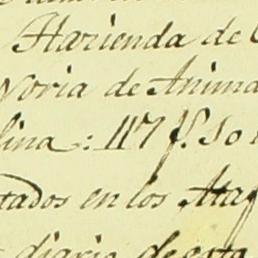 Hazienda de
Noria de Anima
lina: 117 f. So
tados en los Ata
diario de esta